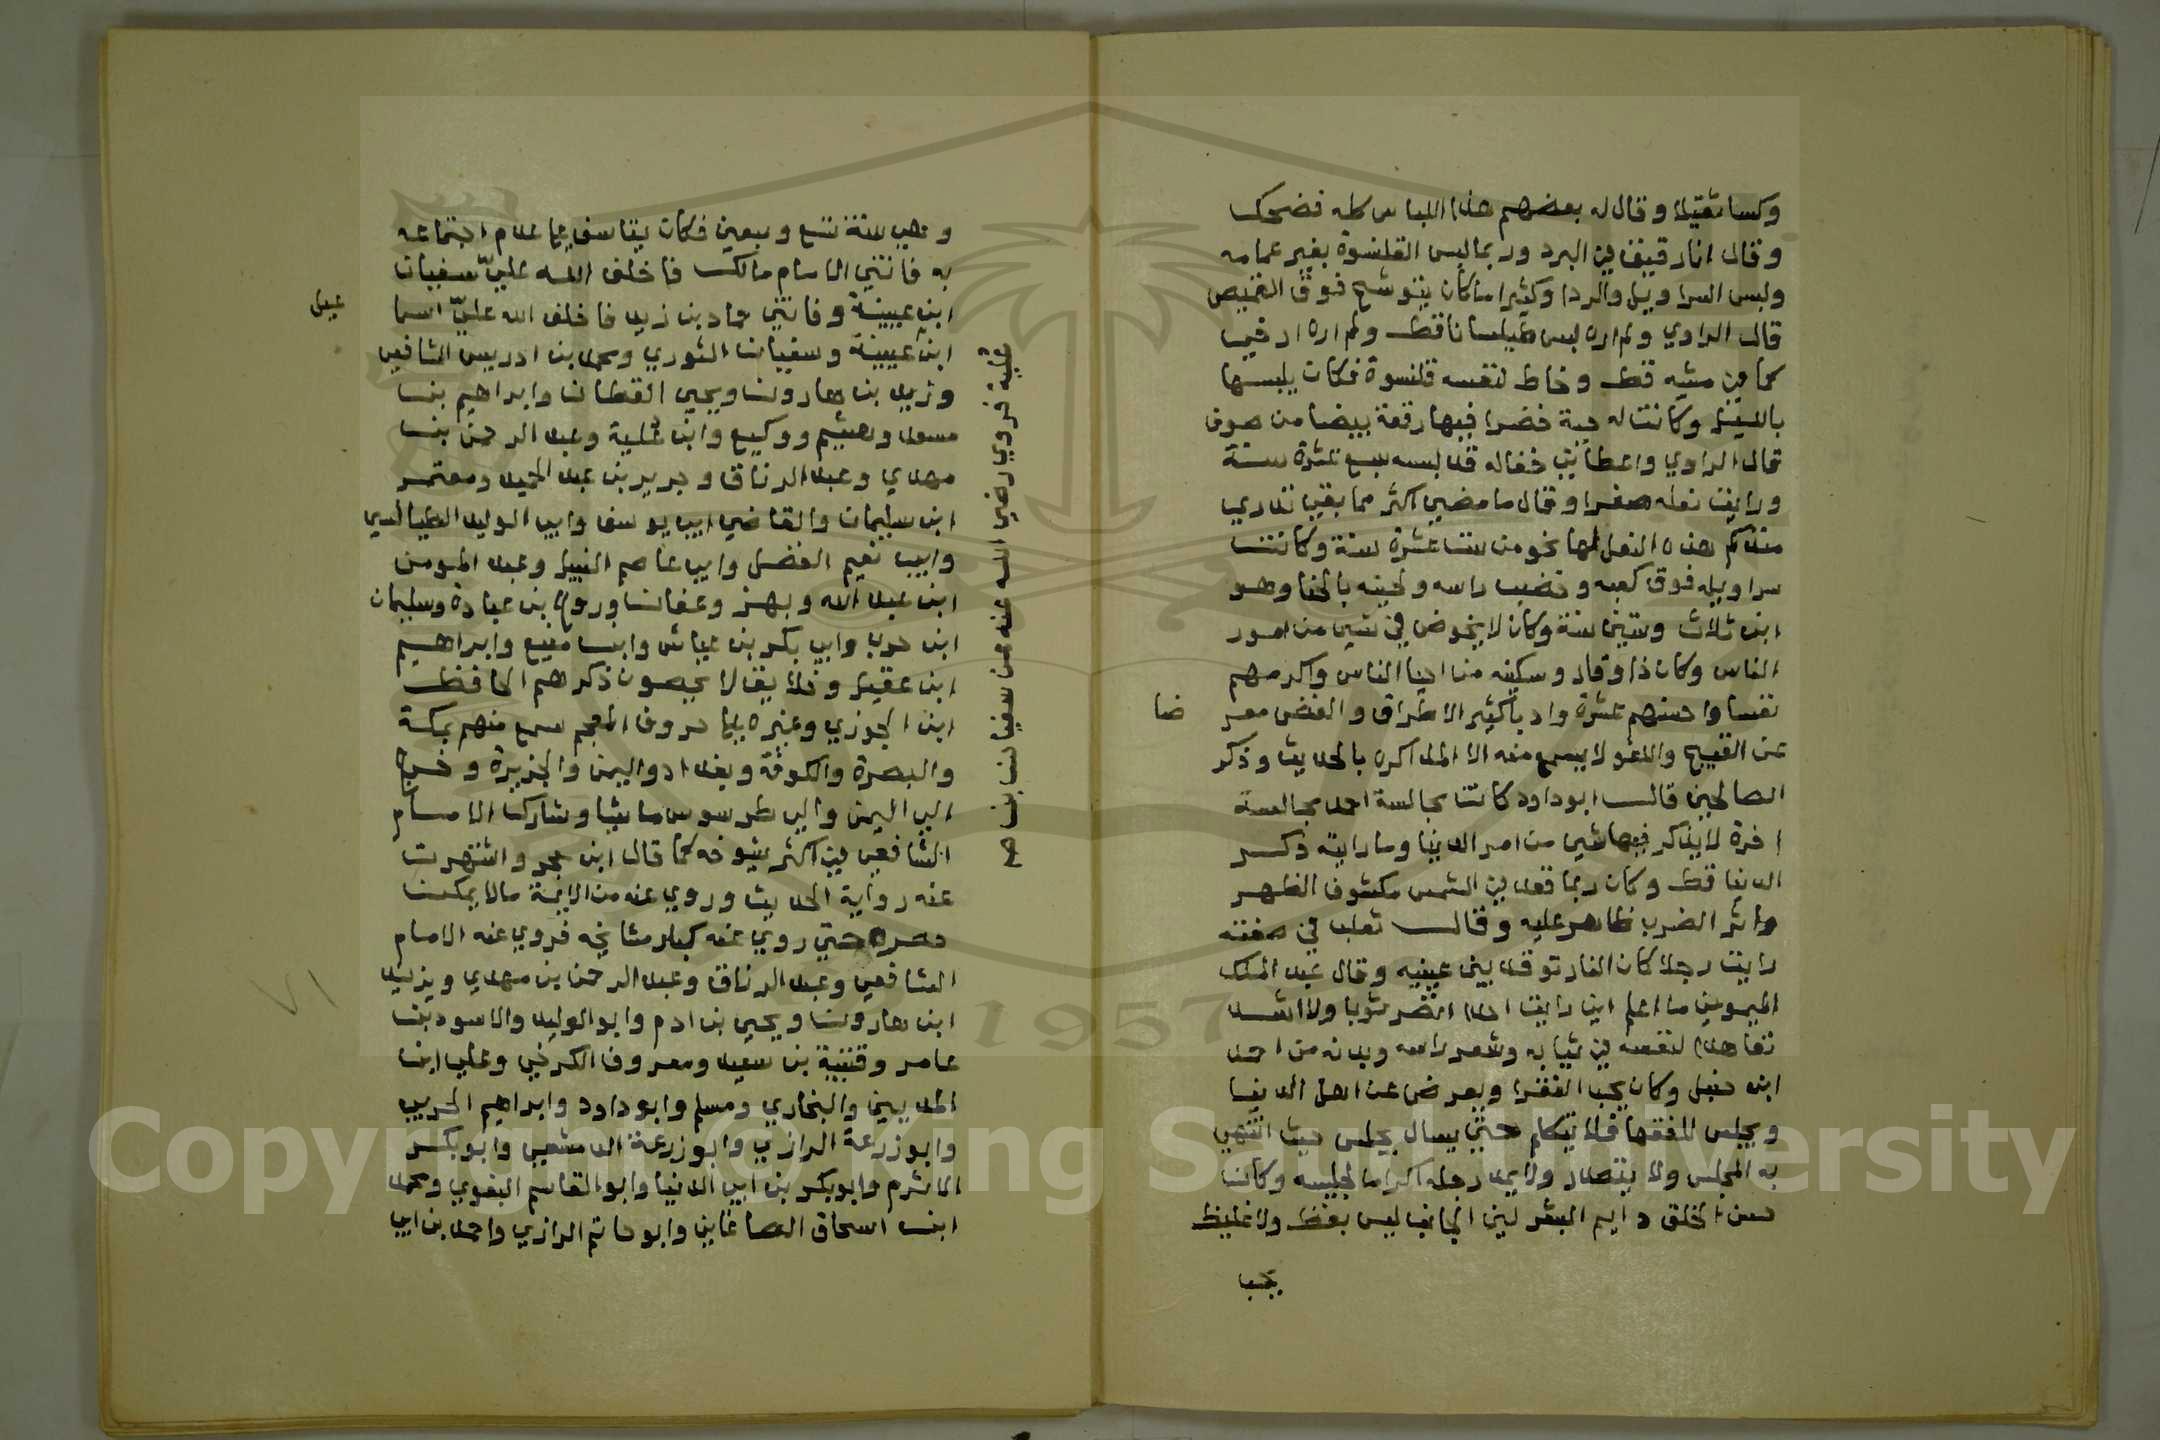 وكسا ثقيلا وقال له بعضهم هذا اللباس كله فضحك
وقال انا رقيق في البرد وربما لبس القلنسوة بغير عمامه
ولبس السراويل والردا وكثيرا ما كان يتوشح فوق القميص
قال الراوي ولم اره لبس طيلسانا قط ولم اره ارخي
كما في مشيه قط وخاط لنفسه قلنسوة فكان يلبسها
بالليل وكانت له جبة خضرا فيها رقعة بيضا من صوف
قال الراوي واعطاني خفا له قد لبسه سبع عشرة سنة
ورايت نعله صفرا وقال ما مضي اكثر مما بقي تدري
منذ كم هذه النعل لها نحو من ست عشرة سنة وكانت
سراويله فوق كعبه وخضب راسه ولحيته بالحنا وهو
ابن ثلاث وستين سنة وكان لا يخوض في شي من امور
الناس وكان ذا وقار وسكينه من احيا الناس واكرمهم
نفسا واحسنهم عشرة وادبا كثير الاطراق والغض معر
ضا
عن القبيح واللغو لا يسمع منه الا المذاكره بالحديث وذكر
الصالحين قال ابو داود كانت مجالسة احمد مجالسة
اخرة لا يذكر فيها شي من امر الدنيا وما رايته ذكر
الدنيا قط وكان ربما قعد في الشمس مكشوف الظهر
واثر الضرب ظاهر عليه وقال ثعلب في صفته
رايت رجلا كان النار توقد بين عينيه وقال عبد الملك
الميموني ما اعلم اني رايت احدا انضر ثوبا ولا اشد
تعاهدا لنفسه في ثيابه وشعر راسه وبدنه من احمد
ابن حنبل وكان يحب الفقرا ويعرض عن اهل الدنيا
ويجلس للفقها فلا يتكلم حتي يسال يجلس حيث انتهي
به المجلس ولا يتصدر ولا يمد رجله اكراما لجليسه وكان
حسن الخلق دايم البشر لين الجانب ليس بفظ ولا غليظ
يحب
وهي سنة تسع وسبعين فكان يتاسف علي عدم اجتماعه
به فاتني الامام مالك فاخلف الله علي سفيان
ابن عيينة وفاتني حماد بن زيد فاخلف الله علي اسما
عيل
ابن عيينة وسفيان الثوري ومحمد بن ادريس الشافعي
ويزيد بن هارون ويحيي القطان وابراهيم بن
سعد وهشيم ووكيع وابن علية وعبد الرحمن بن
مهدي وعبد الرزاق وجرير بن عبد الحميد ومعتمر
ابن سليمان والقاضي ابي يوسف وابي الوليد الطيالسي
وابي نعيم الفضل وابي عاصم النبيل وعبد المومن
ابن عبد الله وبهز وعفان وروح بن عبادة وسليمان
ابن حرب وابي بكر بن عياش وابن منيع وابراهيم
ابن عقيل وخلايق لا يحصون ذكرهم الحافظ
ابن الجوزي وغيره علي حروف المعجم سمع منهم بمكة
والبصرة والكوفة وبغداد واليمن والجزيرة وخرج
الي اليمن والي طرسوس ماشيا وشارك الامام
الشافعي في اكثر شيوخه كما قال ابن حجر واشتهرت
عنه رواية الحديث وروي عنه من الايمة ما لا يمكن
حصره حتي روي عنه كبار مشايخه فروي عنه الامام
الشافعي وعبد الرزاق وعبد الرحمن بن مهدي ويزيد
ابن هارون ويحيي بن ادم وابو الوليد والاسود بن
عامر وقتيبة بن سعيد ومعروف الكرخي وعلي ابن
المديني والبخاري ومسلم وابو داود وابراهيم الحربي
وابو زرعة الرازي وابو زرعة الدمشقي وابو بكر
الاثرم وابو بكر بن ابي الدنيا وابو القاسم البغوي ومحمد
ابن اسحاق الصاغاني وابو حاتم الرازي واحمد بن ابي
رضي الله عنه عن سفيان بن
1957
Copyright © King Saud University